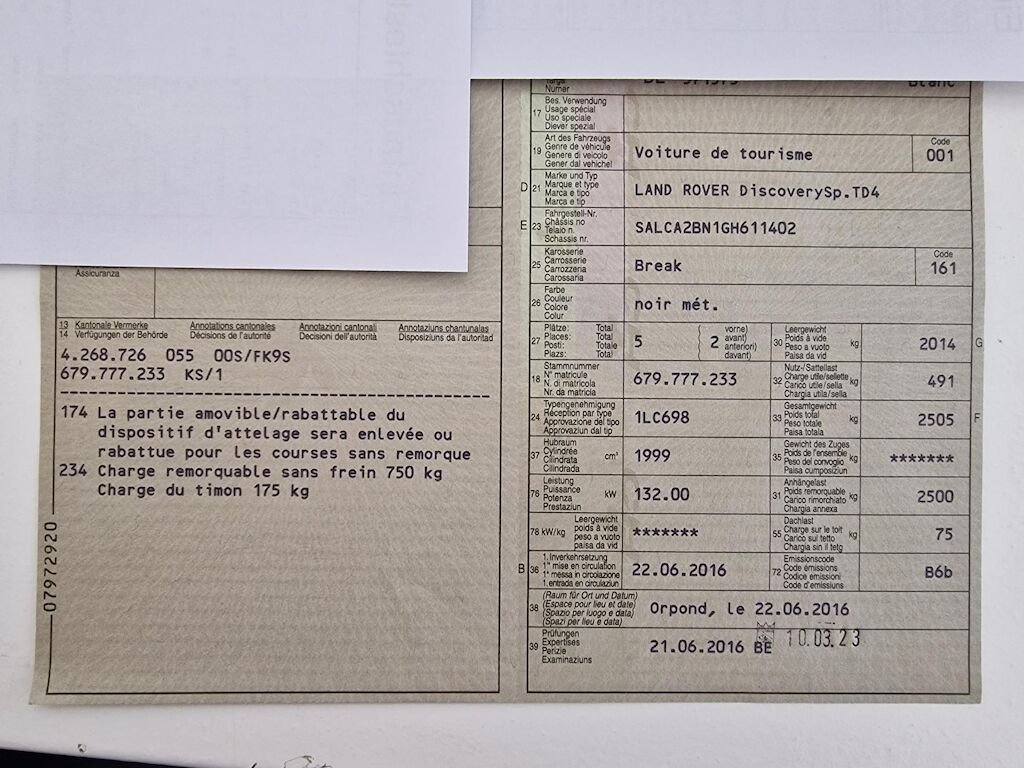 Assicuranza
13 Kantonale Vermerke Annotations cantonales Annotazioni cantonali Annotaziuns chantunalas
14 Verfügungen der Behörde Décisions de l'autorité Decisioni dell'autorità Disposiziuns da l'autoritad
4.268.726 055 00S/FK9S
679.777.233 KS/1
174 La partie amovible/rabattable du
dispositif d'attelage sera enlevée ou
rabattue pour les courses sans remorque
234 Charge remorquable sans frein 750 kg
Charge du timon 175 kg
07972920
Numer
Blanc
17 Bes. Verwendung
Usage spécial
Uso speciale
Diever spezial
19 Art des Fahrzeugs
Genre de véhicule
Genere di veicolo
Gener dal vehichel
Voiture de tourisme
Code
001
D 21 Marke und Typ
Marque et type
Marca e tipo
Marca e tip
LAND ROVER DiscoverySp.TD4
E 23 Fahrgestell-Nr.
Châssis no
Telaio n.
Schassis nr.
SALCA2BN1GH611402
25 Karosserie
Carrosserie
Carrozzeria
Carossaria
Break
Code
161
26 Farbe
Couleur
Colore
Colur
noir mét.
27 Plätze: Total
Places: Total
Posti: Totale
Plazs: Total
5 2
vorne)
avant)
anteriori)
davant)
30 Leergewicht
Poids à vide
Peso a vuoto
Paisa da vid
kg 2014 G
18 Stammnummer
N° matricule
N. di matricola
Nr. da matricla
679.777.233
32 Nutz-/Sattellast
Charge utile/sellette
Carico utile/sella
Chargia utila/sella
kg 491
24 Typengenehmigung
Réception par type
Approvazione del tipo
Approvaziun dal tip
1LC698
33 Gesamtgewicht
Poids total
Peso totale
Paisa totala
kg 2505 F
37 Hubraum
Cylindrée
Cilindrata
Cilindrada
cm³ 1999
35 Gewicht des Zuges
Poids de l'ensemble
Peso del convoglio
Paisa cumposiziun
kg *******
76 Leistung
Puissance
Potenza
Prestaziun
kW 132.00
31 Anhängelast
Poids remorquable
Carico rimorchiato
Chargia annexa
kg 2500
78 kW/kg Leergewicht
poids à vide
peso a vuoto
paisa da vid
*******
55 Dachlast
Charge sur le toit
Carico sul tetto
Chargia sin il tetg
kg 75
B 36 1. Inverkehrsetzung
1re mise en circulation
1a messa in circolazione
1. entrada en circulaziun
22.06.2016
72 Emissionscode
Code émissions
Codice emissioni
Code d'emissiuns
B6b
38 (Raum für Ort und Datum)
(Espace pour lieu et date)
(Spazio per luogo e data)
(Spazi per lieu e data)
Orpond, le 22.06.2016
39 Prüfungen
Expertises
Perizie
Examinaziuns
21.06.2016 BE 10.03.23